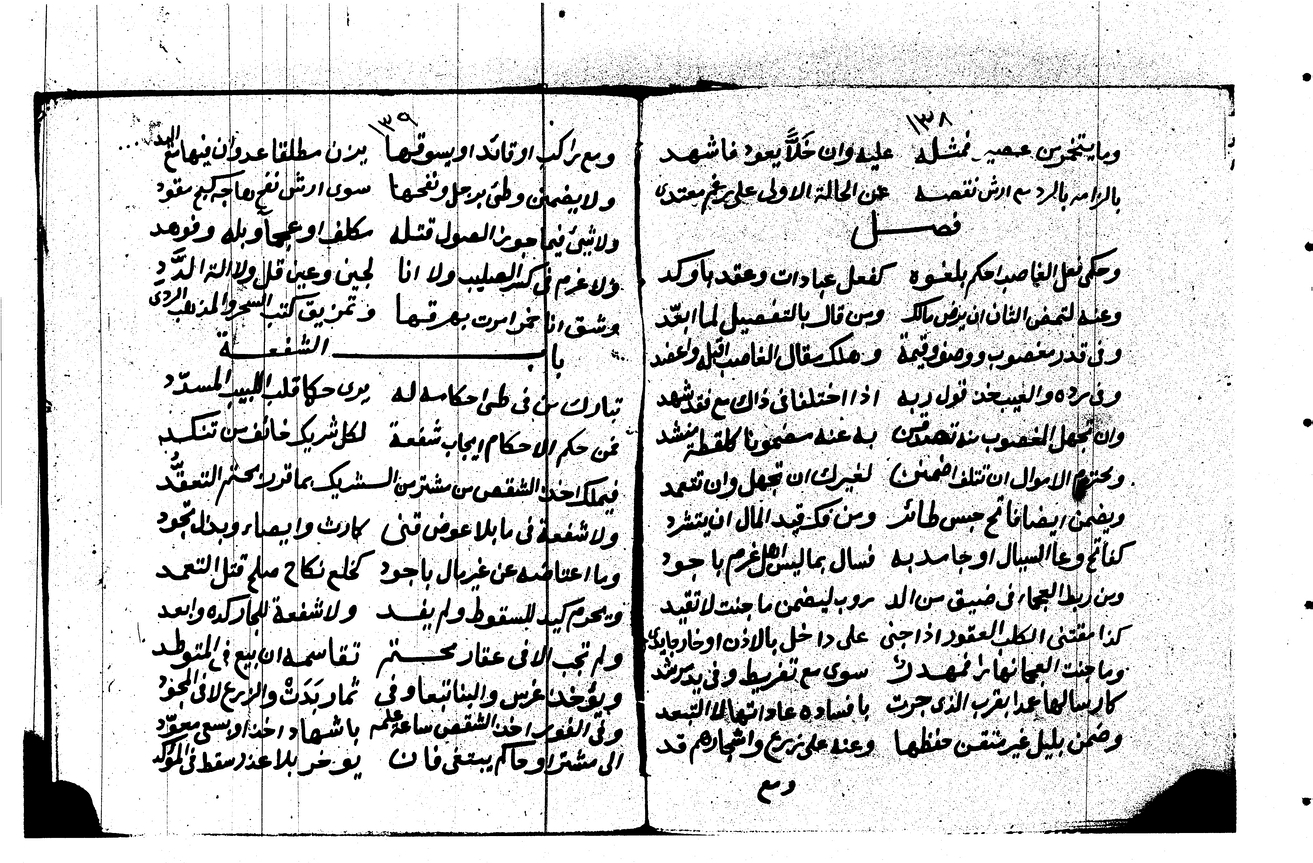 ١٣٨
وما يتخمر من عصير فمثله عليه وان خلاً يعود فاشهد
بالزامه بالرد مع ارش نقصه عن الحالة الاولى على رغم معتدى
فصل
وحكمى فعل الغاصب احكم بلغوه كفعل عبادات وعقد بأوكد
وعنه لتمض الثان ان يرض مالك ومن قال بالتفصيل لما ابعّد
وفى قدر مغصوب ووصف وقيمة وهلك مقال الغاصب اقبله واعضد
وفى رده والغيب خذ قول ربه اذا اختلفا فى ذاك مع فقد شهد
وان تجهل المغصوب منه تصدقن به عنه مضمونا كلقطة منشد
ومحترم الاموال ان تتلف اضمنن لغيرك ان تجهل وان تتعمد
ويضمن ايضا فاتح حبس طائر ومن فك قيد المال ان يتشرد
كفاتح وعا السيال او جامد به فسال بما ليس غرم باجود
ومن ربط العجماء فى ضيق من الد روب ليضمن ما جنت لا تقيد
كذا مقتنى الكلب العقور اذا جنى على داخل بالاذن او خارج
وما جنت العجما نهارا فمهدر سوى مع تفريط وفى يد مرشد
كارسالها عمدا بقرب الذى جرت بافساده عاداتها لا التبعد
وضمن بليل غير متقن حفظها وعنه على زرع واشجارهم قد
ومع
١٣٩
ومع راكب او قائد او يسوقها يدن مطلقا عدوان فيها مع اليد
ولا يضمن وطئ برجل ونفحها سوى ارش نفح هاجه كبح مقود
ولا شئ فيما جوز الصول قتله مكلف او عجماً وبله وفوهد
ولا غرم فى كسر الصليب ولا انا لجين وعين قل ولا الة الدَّد
وشق انا خمر امرت بهرقها وتمزيق كتب السحر والمذهب الردى
باب الشفعة
تبارك من فى طى احكامه له يرى حكما قلب اللبيب المسدّد
فمن حكم الاحكام ايجاب شفعة لكل شريك خائف من تنكد
فيملك اخذ الشقص من مشتر من الشريك بما قررت بحتم التعقُّد
ولا شفعة فى ما بلا عوض قنى كارث وايصاء وبذله تجّود
وما اعتاضه عن غير مال باجود كخلع نكاح صلح قتل التعمد
ويحرم كيد للسقوط ولم يفد ولا شفعة للجار كده وابعد
ولم تجب الا فى عقار محتم تقاسمه ان بيع فى المتوطد
ويؤخذ غرس والبنا تبعا وفى ثمار بَدَتْ والزرع لا فى المجود
وفى الفور اخذ الشقص ساعة علمه باشهاد اخذ او بسعى معوّد
الى مشتر او حاكم يبتغى فان يوخر بلا عذر سقط فى المؤكد